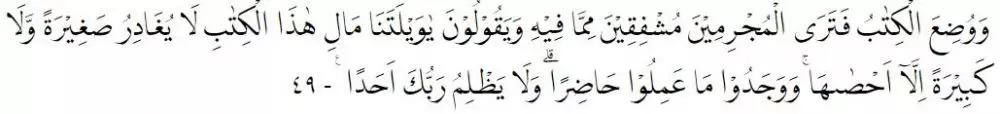 وَوُضِعَ الْكِتٰبُ فَتَرَى الْمُجْرِمِيْنَ مُشْفِقِيْنَ مِمَّا فِيْهِ وَيَقُوْلُوْنَ يٰوَيْلَتَنَا مَالِ هٰذَا الْكِتٰبِ لَا يُغَادِرُ صَغِيْرَةً وَّلَا
كَبِيْرَةً اِلَّآ اَحْصٰىهَاۚ وَوَجَدُوْا مَا عَمِلُوْا حَاضِرًاۗ وَلَا يَظْلِمُ رَبُّكَ اَحَدًا ࣖ - ٤٩